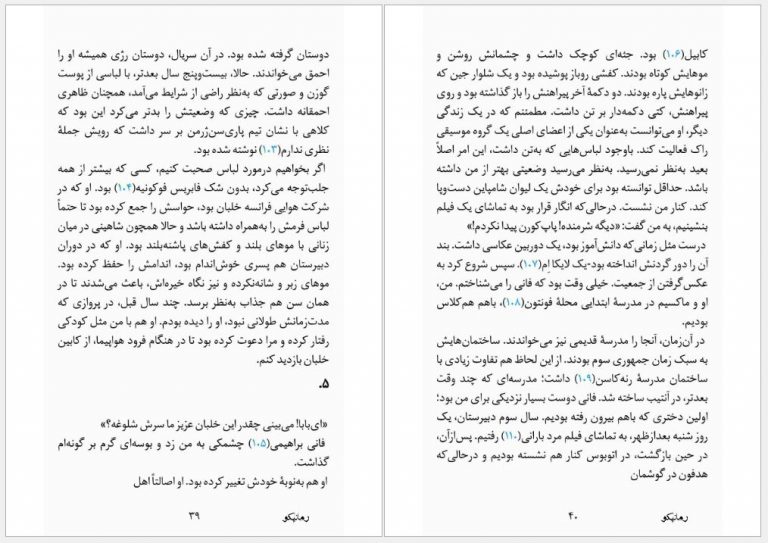 دوستان گرفته شده بود. در آن سریال، دوستان رژی همیشه او را
احمق می‌خواندند. حالا، بیست‌وپنج سال بعدتر، با لباسی از پوست
گوزن و صورتی که به‌نظر راضی از شرایط می‌آمد، همچنان ظاهری
احمقانه داشت. چیزی که وضعیتش را بدتر می‌کرد این بود که
کلاهی با نشان تیم پاری‌سن‌ژرمن بر سر داشت که رویش جملهٔ
نظری ندارم(۱۰۳) نوشته شده بود.
اگر بخواهیم درمورد لباس صحبت کنیم، کسی که بیشتر از همه
جلب‌توجه می‌کرد، بدون شک فابریس فوکونیه(۱۰۴) بود. او که در
شرکت هوایی فرانسه خلبان بود، حواسش را جمع کرده بود تا حتماً
لباس فرمش را به‌همراه داشته باشد و حالا همچون شاهینی در میان
زنانی با موهای بلند و کفش‌های پاشنه‌بلند بود. او که در دوران
دبیرستان هم پسری خوش‌اندام بود، اندامش را حفظ کرده بود.
موهای زبر و شانه‌نکرده و نیز نگاه خیره‌اش، باعث می‌شدند تا در
همان سن هم جذاب به‌نظر برسد. چند سال قبل، در پروازی که
مدت‌زمانش طولانی نبود، او را دیده بودم. او هم با من مثل کودکی
رفتار کرده و مرا دعوت کرده بود تا در هنگام فرود هواپیما، از کابین
خلبان بازدید کنم.
۵.
«ای‌بابا! می‌بینی چقدر این خلبان عزیز ما سرش شلوغه؟»
فانی براهیمی(۱۰۵) چشمکی به من زد و بوسه‌ای گرم بر گونه‌ام
گذاشت.
او هم به‌نوبهٔ خودش تغییر کرده بود. او اصالتاً اهل
رمانیکو ۳۹
کابیل(۱۰۶) بود. جثه‌ای کوچک داشت و چشمانش روشن و
موهایش کوتاه بودند. کفشی روباز پوشیده بود و یک شلوار جین که
زانوهایش پاره بودند. دو دکمهٔ آخر پیراهنش را باز گذاشته بود و روی
پیراهنش، کتی دکمه‌دار بر تن داشت. مطمئنم که در یک زندگی
دیگر، او می‌توانست به‌عنوان یکی از اعضای اصلی یک گروه موسیقی
راک فعالیت کند. باوجود لباس‌هایی که به‌تن داشت، این امر اصلاً
بعید به‌نظر نمی‌رسید. به‌نظر می‌رسید وضعیتی بهتر از من داشته
باشد. حداقل توانسته بود برای خودش یک لیوان شامپاین دست‌وپا
کند. کنار من نشست. درحالی‌که انگار قرار بود به تماشای یک فیلم
بنشینیم، به من گفت: «دیگه شرمنده! پاپ‌کورن پیدا نکردم!»
درست مثل زمانی‌که دانش‌آموز بود، یک دوربین عکاسی داشت. بند
آن را دور گردنش انداخته بود-یک لایکا اِم(۱۰۷). سپس شروع کرد به
عکس‌گرفتن از جمعیت. خیلی وقت بود که فانی را می‌شناختم. من،
او و ماکسیم در مدرسهٔ ابتدایی محلهٔ فونتون(۱۰۸)، باهم هم‌کلاس
بودیم.
در آن‌زمان، آنجا را مدرسهٔ قدیمی نیز می‌خواندند. ساختمان‌هایش
به سبک زمان جمهوری سوم بودند. از این لحاظ هم تفاوت زیادی با
ساختمان مدرسهٔ رنه‌کاسن(۱۰۹) داشت؛ مدرسه‌ای که چند وقت
بعدتر، در آنتیب ساخته شد. فانی دوست بسیار نزدیکی برای من بود؛
اولین دختری که باهم بیرون رفته بودیم. سال سوم دبیرستان، یک
روز شنبه بعدازظهر، به تماشای فیلم مرد بارانی(۱۱۰) رفتیم. پس‌ازآن،
در حین بازگشت، در اتوبوس کنار هم نشسته بودیم و درحالی‌که
هدفون در گوشمان
رمانیکو ۴۰